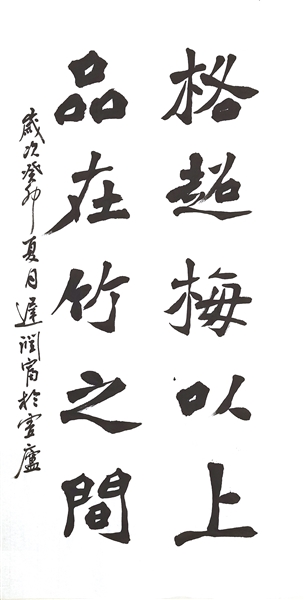 格超梅以上
品在竹之間
歲次癸卯夏月遲潤富於雲廬